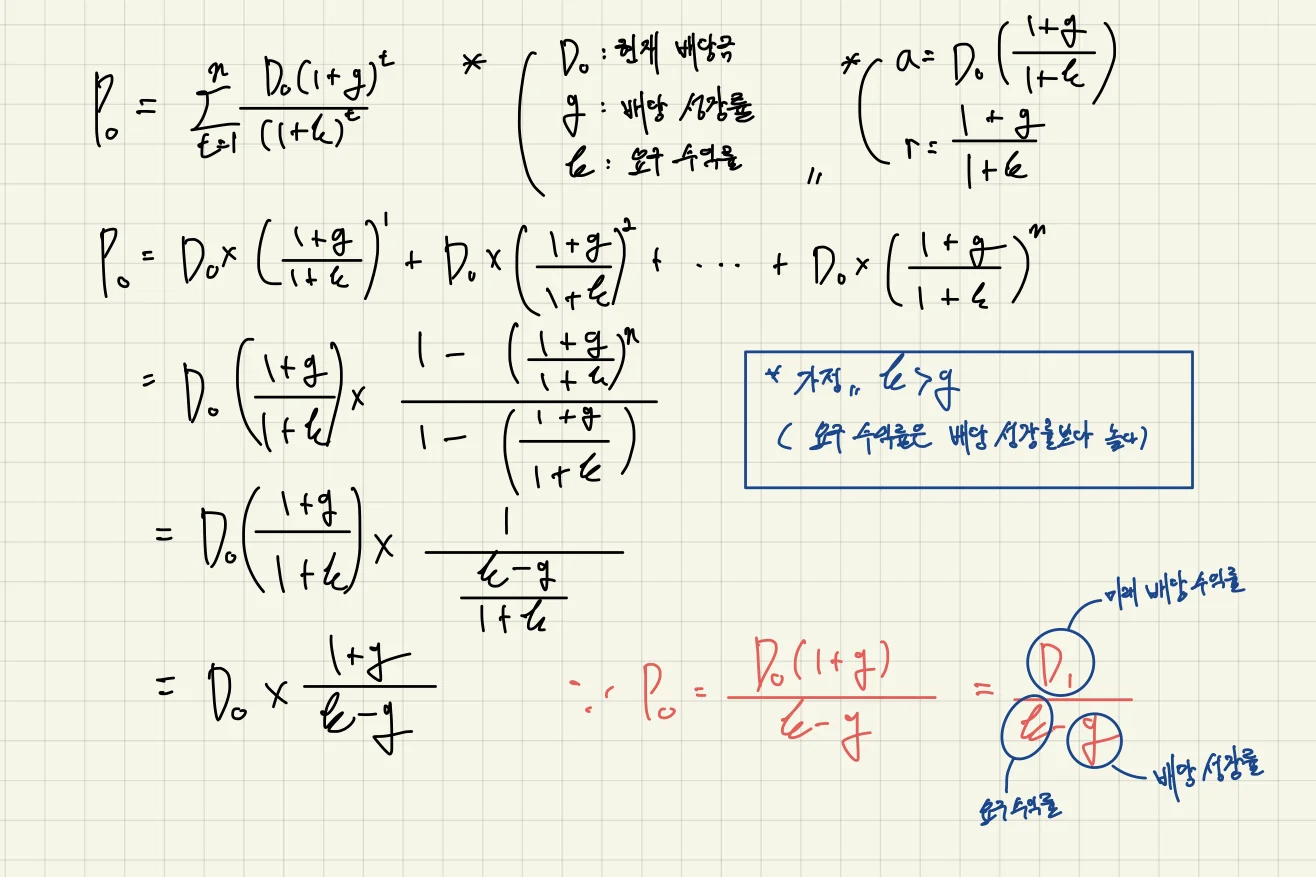 P₀ = Σ_{t=1}^{n} D₀(1+g)^t / (1+k)^t * ( D₀ :현재 배당금 ,, * ( a = D₀((1+g)/(1+k))
g : 배당 성장률 r = (1+g)/(1+k)
k : 요구 수익률
P₀ = D₀ × ((1+g)/(1+k))^1 + D₀ × ((1+g)/(1+k))^2 + ... + D₀ × ((1+g)/(1+k))^n
= D₀((1+g)/(1+k)) × (1 - ((1+g)/(1+k))^n) / (1 - ((1+g)/(1+k)))
* 가정,, k > g
( 요구 수익률은 배당 성장률보다 높다)
= D₀((1+g)/(1+k)) × 1 / ((k-g)/(1+k))
= D₀ × (1+g)/(k-g)
∵ P₀ = D₀(1+g)/(k-g) = D₁/(k-g)
미래 배당 수익률
요구 수익률
배당 성장률